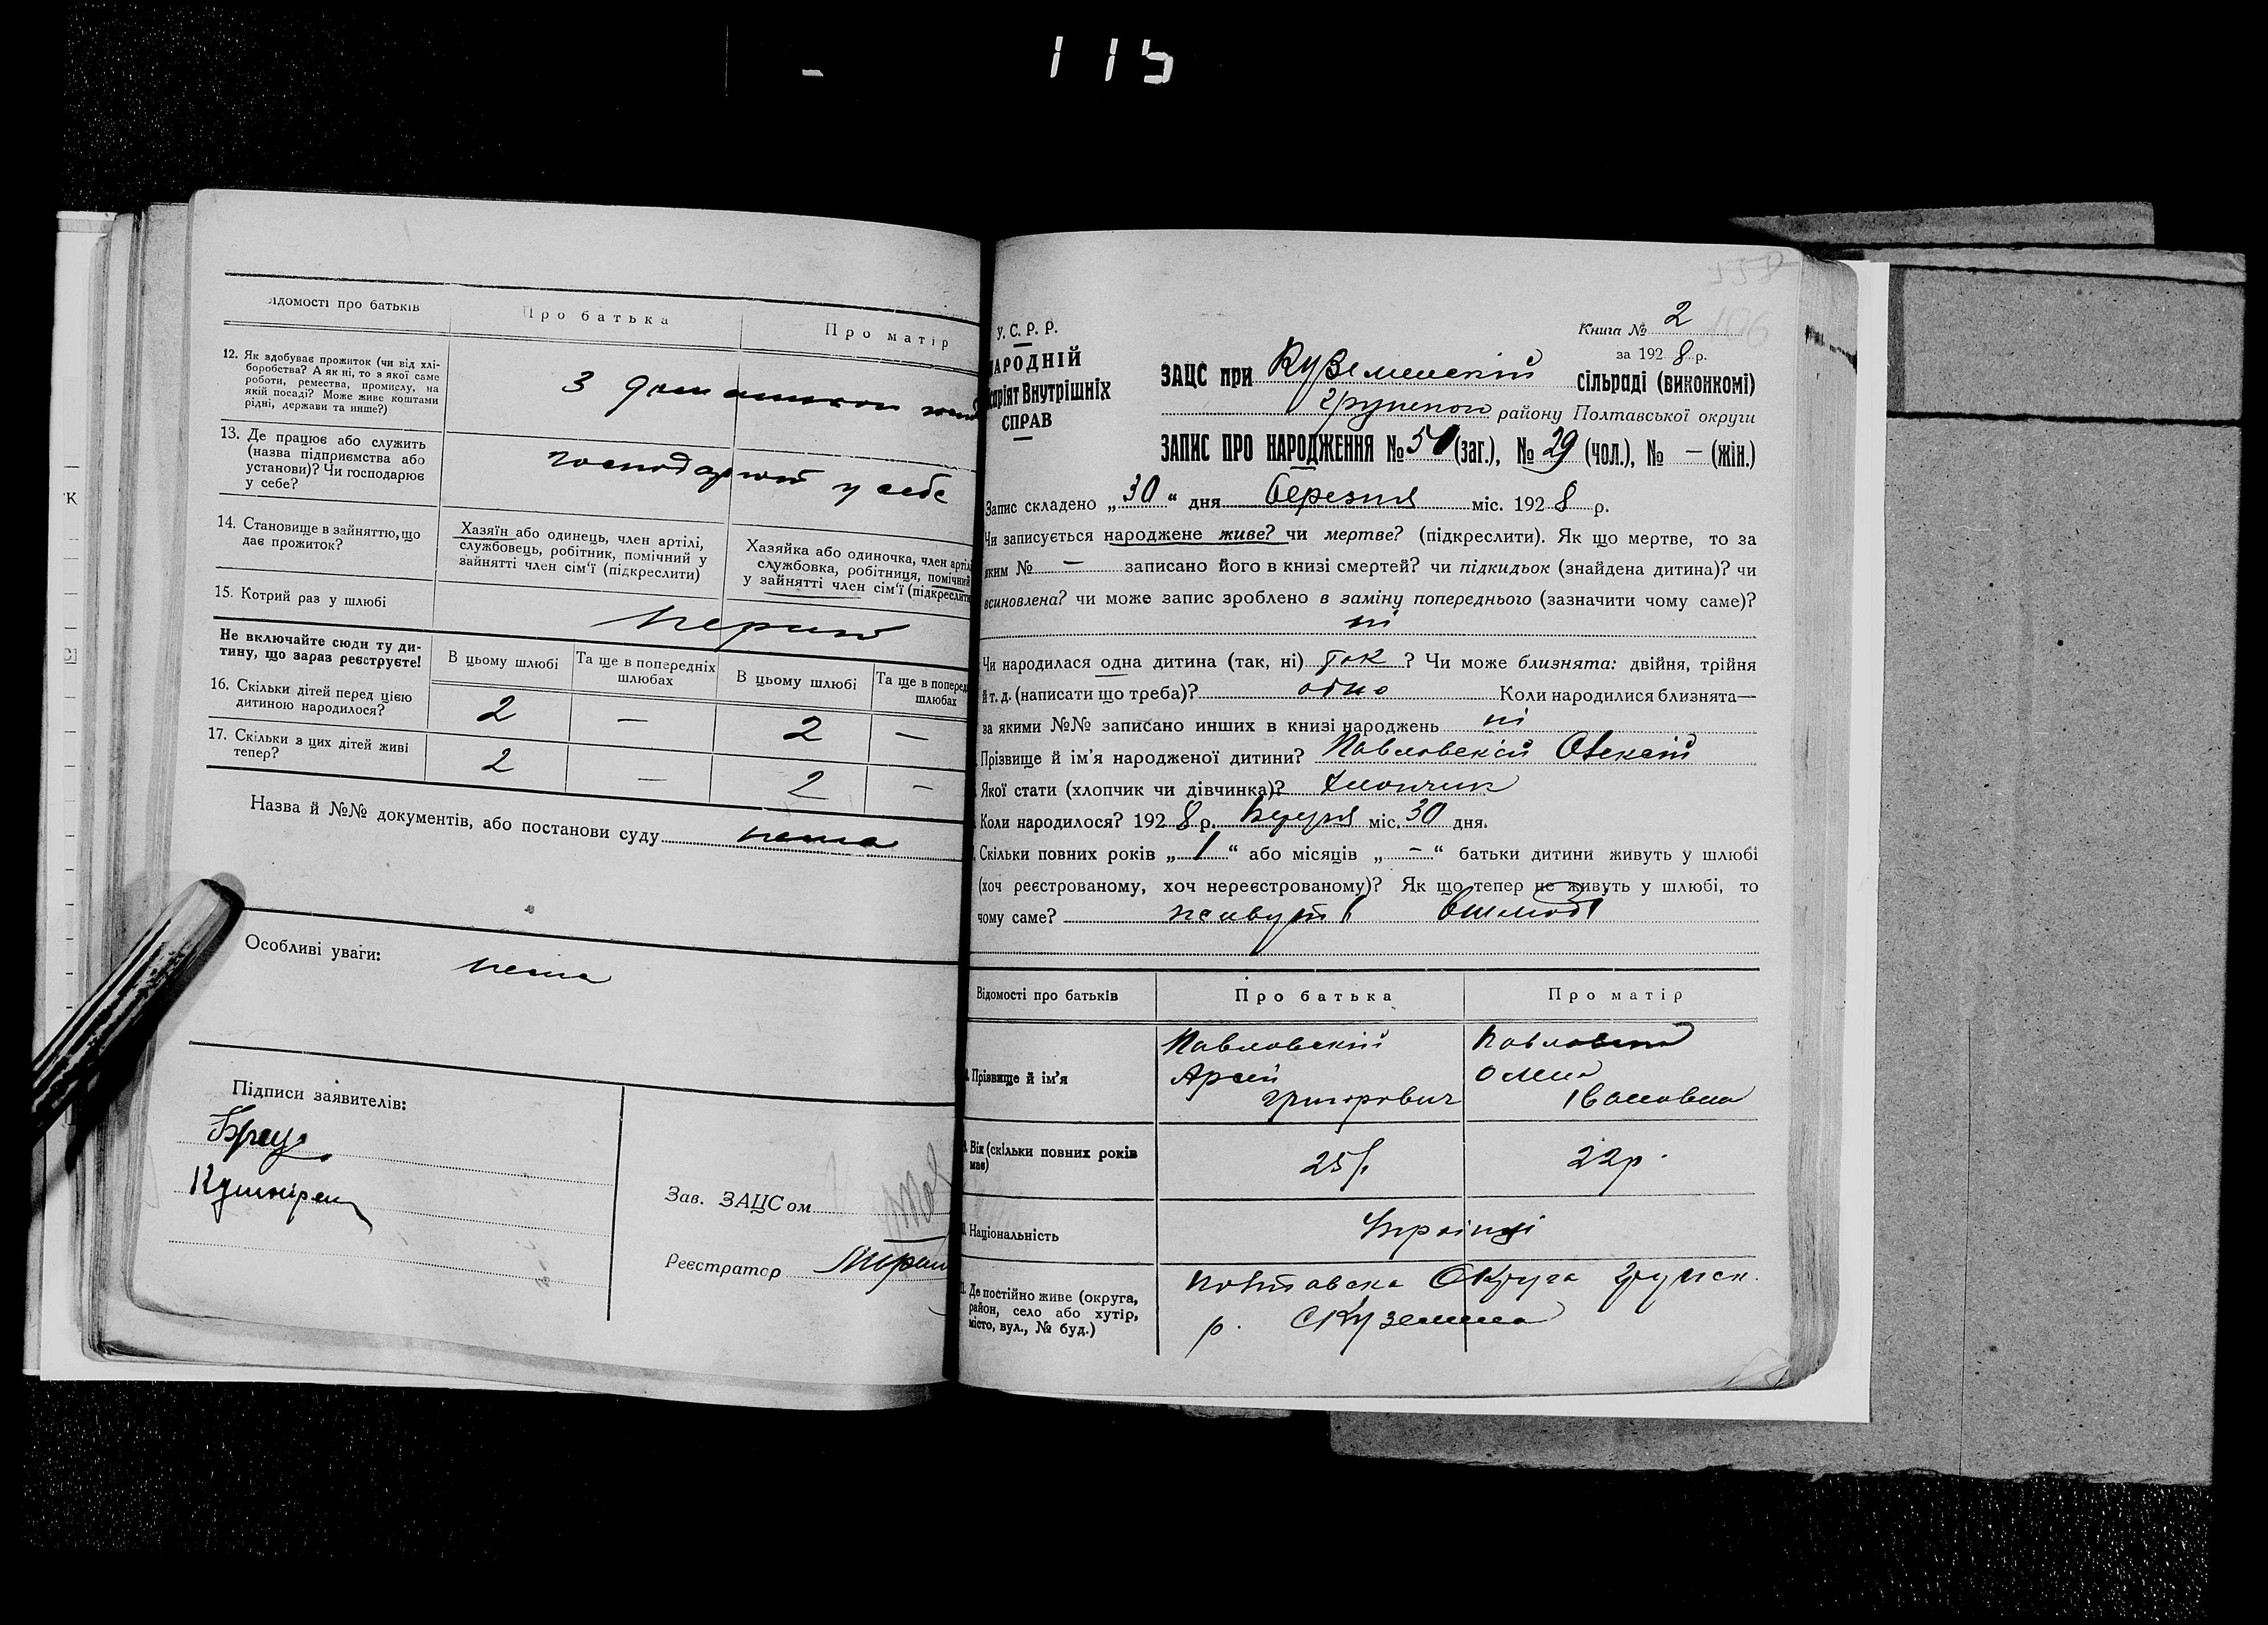 115
ідомості про батьків
Про батька
Про матір
12. Як здобуває прожиток (чи від хлі-
боробства? А як ні, то з якої саме
роботи, ремества, промислу, на
якій посаді? Може живе коштами
рідні, держави та инше?)
З
13. Де працює або служить
(назва підприємства або
установи)? Чи господарює
у себе?
господарюй у себе
14. Становище в зайняттю, що
дає прожиток?
Хазяїн або одинець, член артілі,
службовець, робітник, помічний у
зайнятті член сім'ї (підкреслити)
Хазяйка або одиночка, член артіл
службовка, робітниця, помічний
у зайнятті член сім'ї (підкреслити
15. Котрий раз у шлюбі
перший
Не включайте сюди ту ди-
тину, що зараз реєструєте!
В цьому шлюбі
Та ще в попередніх
шлюбах
В цьому шлюбі
Та ще в поперед
шлюбах
16. Скільки дітей перед цією
дитиною народилося?
2 — 2 —
17. Скільки з цих дітей живі
тепер?
2 — 2 —
Назва й №№ документів, або постанови суду нема
Особливі уваги: нема
Підписи заявителів:
Зав. ЗАЦСом
Реєстратор
У. С. Р. Р.
НАРОДНІЙ
саріят Внутрішніх
СПРАВ
Книга № 2
106
за 1928 р.
ЗАЦС при Куземенскій сільраді (виконкомі)
району Полтавської округи
ЗАПИС ПРО НАРОДЖЕННЯ № 50 (заг.), № 29 (чол.), № — (жін.)
Запис складено „30“ дня березня міс. 1928 р.
Чи записується народжене живе? чи мертве? (підкреслити). Як що мертве, то за
яким № — записано його в книзі смертей? чи підкидьок (знайдена дитина)? чи
всиновлена? чи може запис зроблено в заміну попереднього (зазначити чому саме)?
ні
Чи народилася одна дитина (так, ні) так ? Чи може близнята: двійня, трійня
й т. д. (написати що треба)? одно Коли народилися близнята—
за якими №№ записано инших в книзі народжень ні
Прізвище й ім'я народженої дитини? Павловскій Олексій
Якої стати (хлопчик чи дівчинка)? Хлопчик
Коли народилося? 1928 р. березня міс. 30 дня.
Скільки повних років „1“ або місяців „—“ батьки дитини живуть у шлюбі
(хоч реєстрованому, хоч нереєстрованому)? Як що тепер не живуть у шлюбі, то
чому саме?
Відомості про батьків
Про батька
Про матір
Прізвище й ім'я
Павловскій
Арсій
Григорович
Павловска
Олена
Івановна
Вік (скільки повних років
має)
25 р.
22 р.
Національність
Українці
Де постійно живе (округа,
район, село або хутір,
місто, вул., № буд.)
Полтавска Округа Грунск.
р. С Куземена